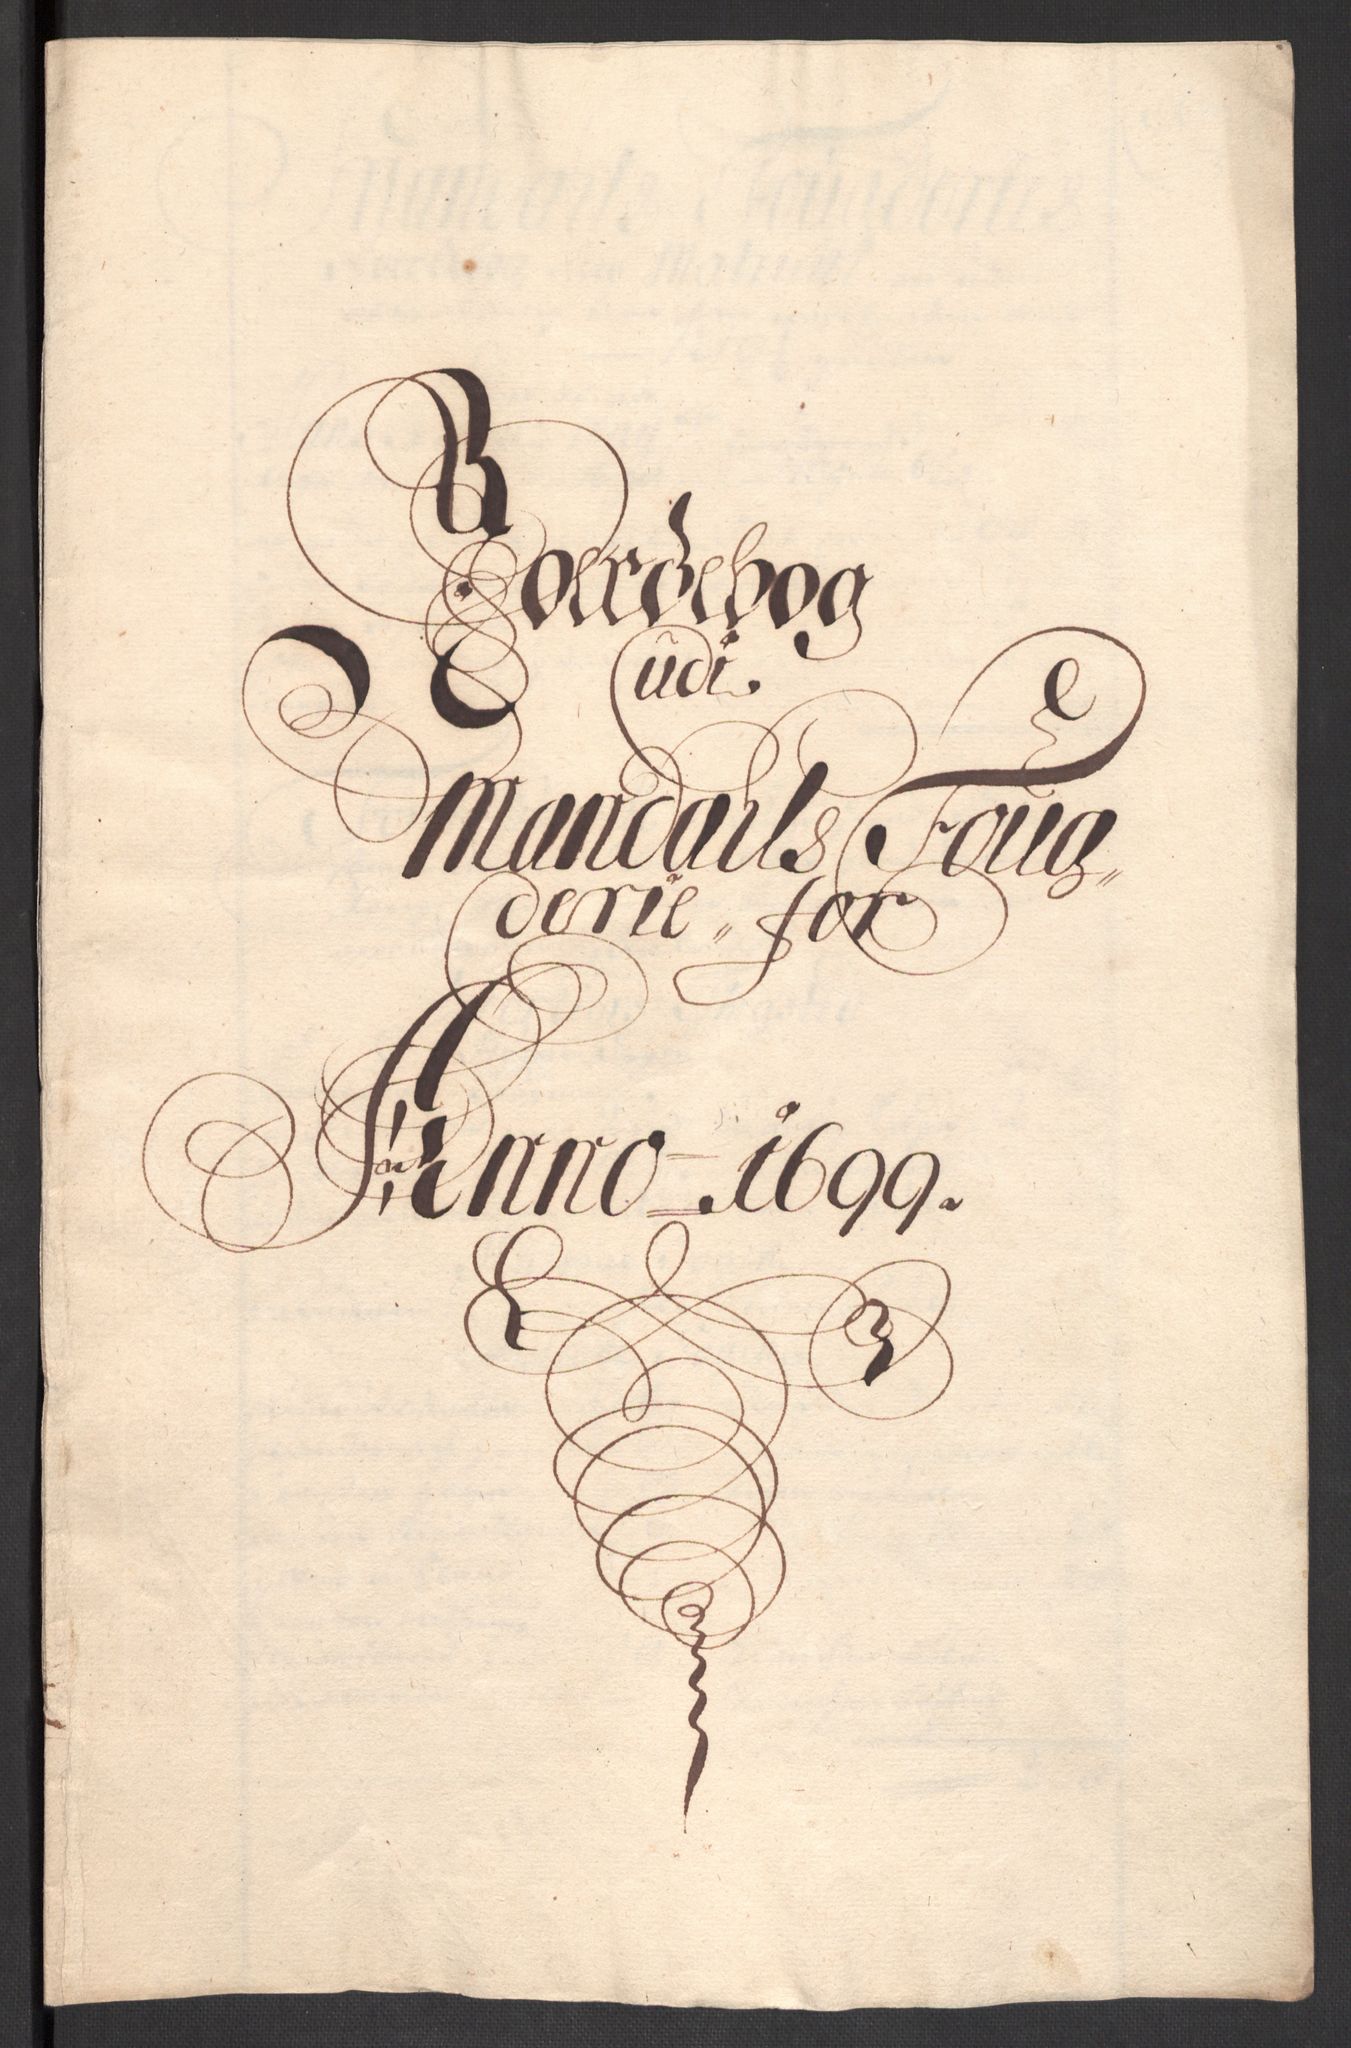 Joerdebog
udi
Mandails Foug„
derie„ for
Anno 1699.